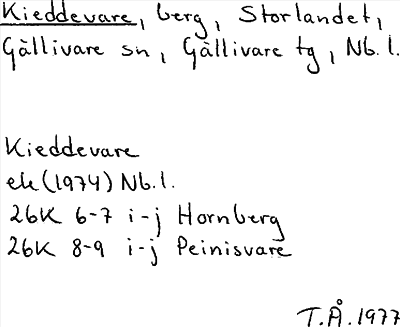 Kieddevare, berg, Storlandet,
Gällivare sn, Gällivare tg, Nb. l.
Kieddevare
ek (1974) Nb. l.
26K 6-7 i-j Hornberg
26K 8-9 i-j Peinisvare
T.Å. 1977